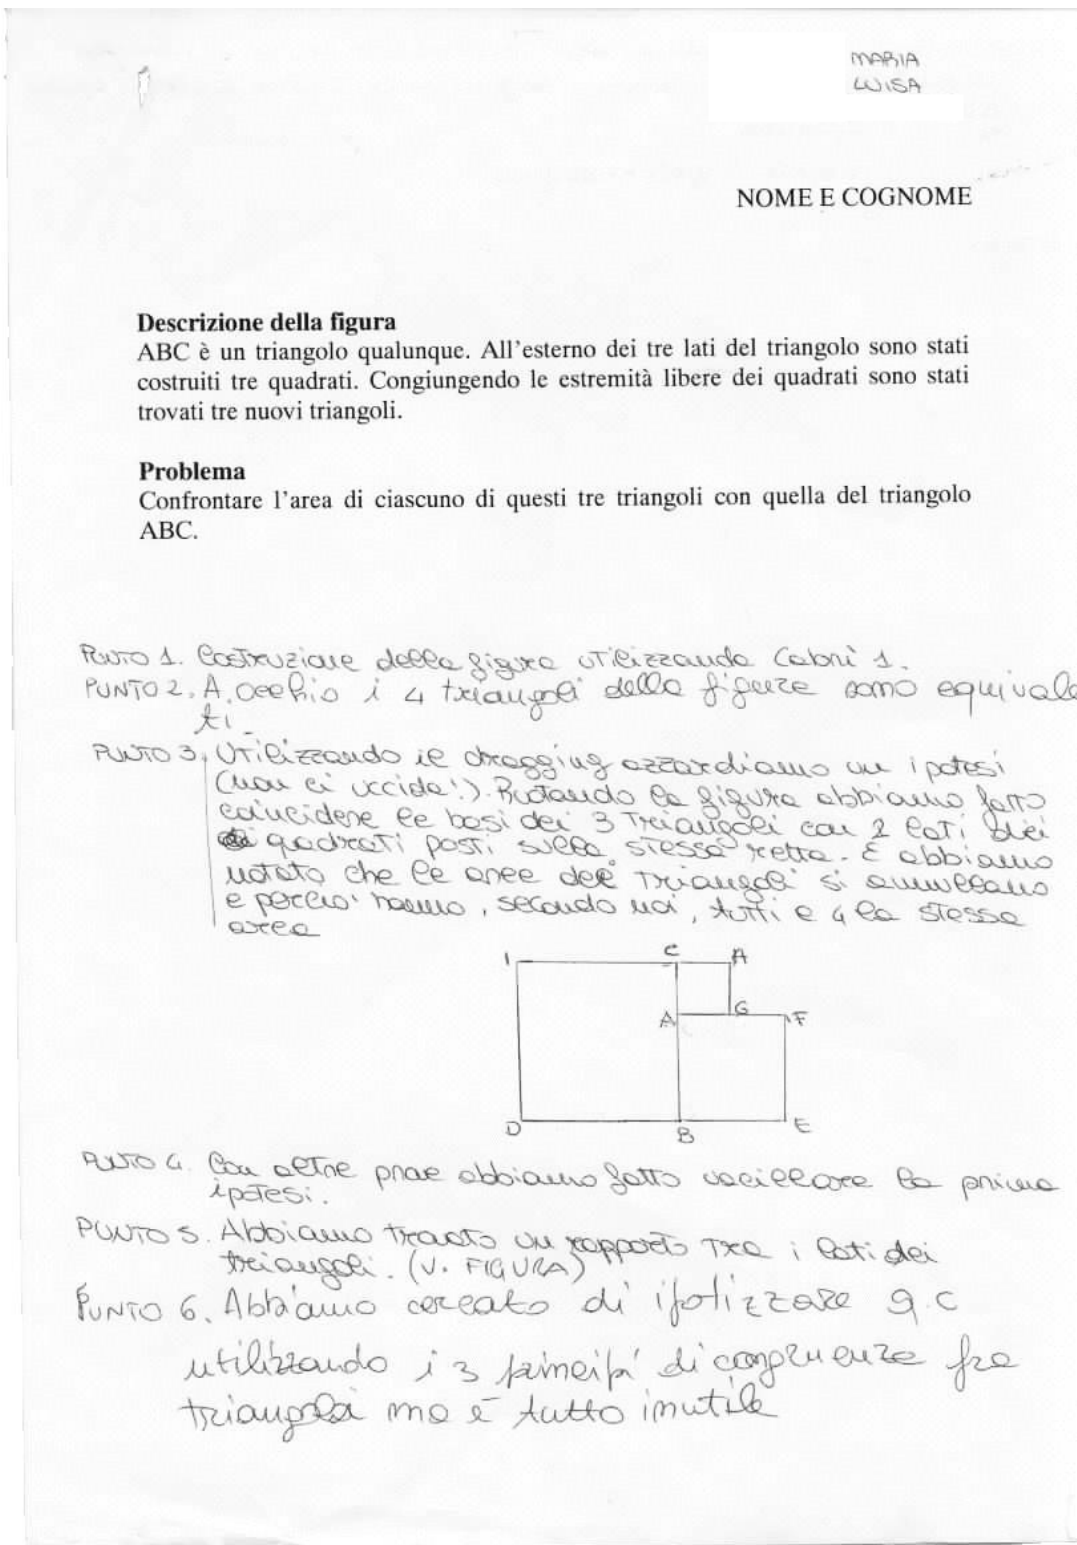 MARIA
LUISA
NOME E COGNOME
Descrizione della figura
ABC è un triangolo qualunque. All'esterno dei tre lati del triangolo sono stati
costruiti tre quadrati. Congiungendo le estremità libere dei quadrati sono stati
trovati tre nuovi triangoli.
Problema
Confrontare l'area di ciascuno di questi tre triangoli con quella del triangolo
ABC.
PUNTO 1. Costruzione della figura utilizzando Cabrì 1.
PUNTO 2. A occhio i 4 triangoli della figura sono equivale
ti
PUNTO 3. Utilizzando il dragging azzardiamo un ipotesi
(non ci uccida!). Ruotando la figura abbiamo fatto
coincidere le basi dei 3 triangoli con 2 lati dei
quadrati posti sulla stessa retta. E abbiamo
notato che le aree dei triangoli si annullano
e perciò hanno, secondo noi, tutti e 4 la stessa
area
I C A
A G F
D B E
PUNTO 4. Con altre prove abbiamo fatto vacillare la prima
ipotesi.
PUNTO 5. Abbiamo trovato un rapporto tra i lati dei
triangoli. (V. FIGURA)
PUNTO 6. Abbiamo cercato di ipotizzare q.c
utilizzando i 3 principi di congruenza fra
triangoli ma è tutto inutile